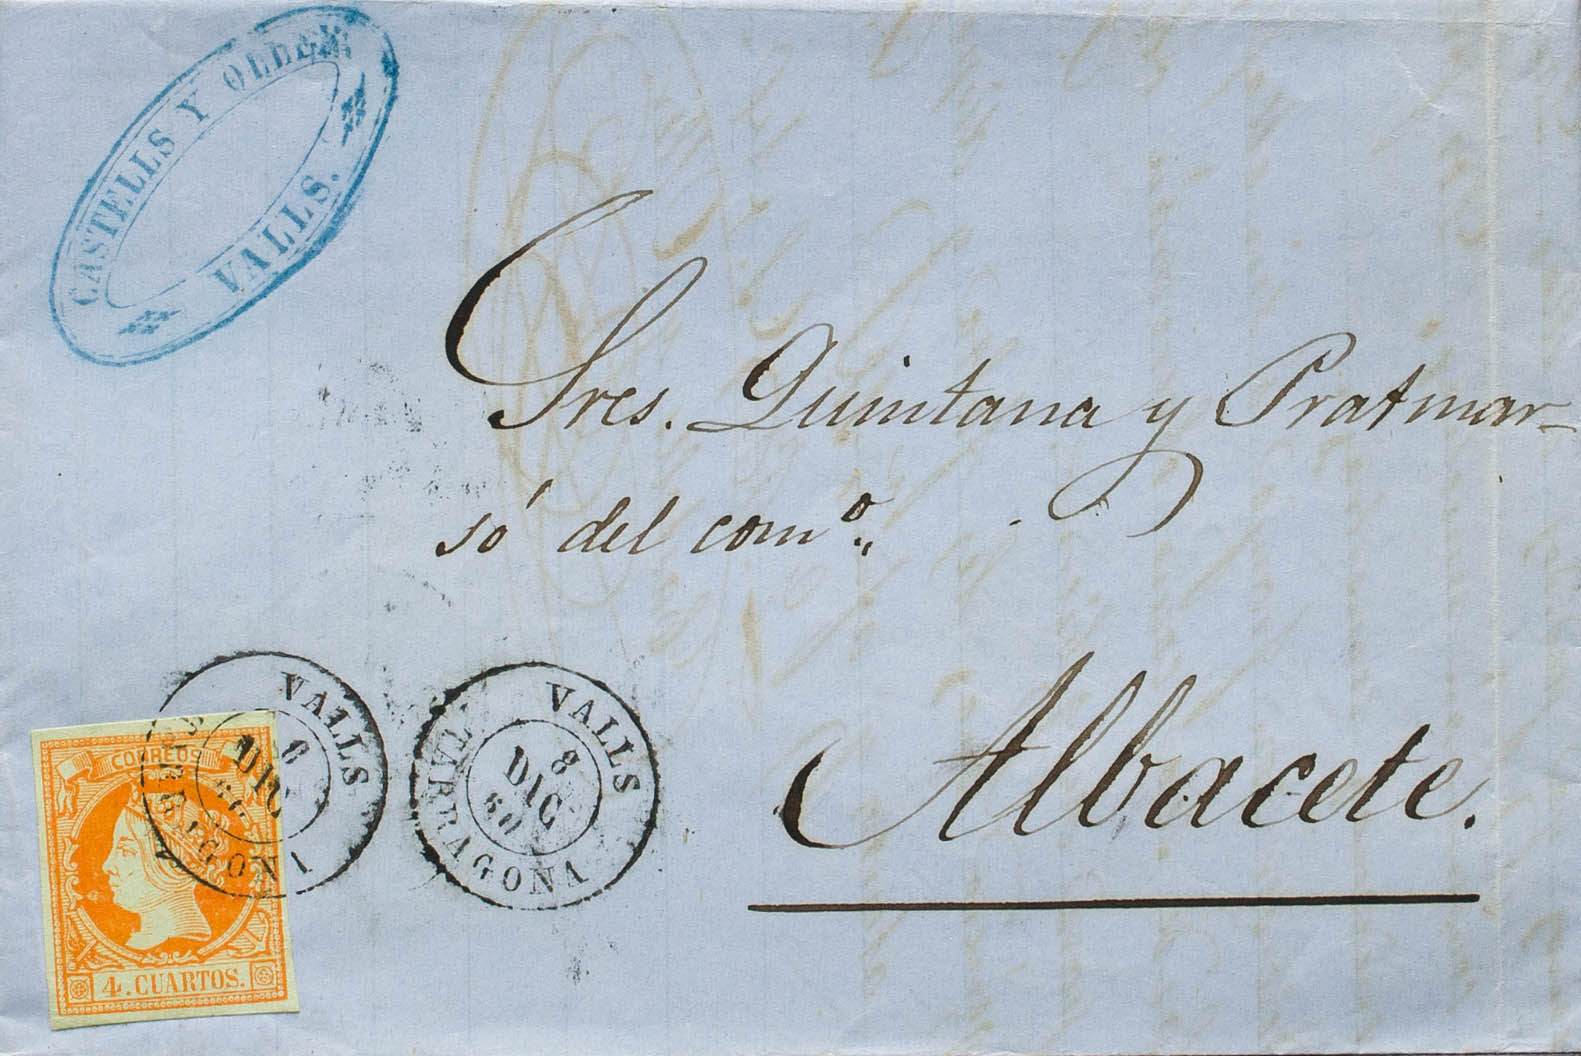 CASTELLS Y OLLER
VALLS.
Sres. Quintana y Pratmar-
só del comº.
Albacete.
VALLS
DIC
TARRAGONA
VALLS
8
DIC
60
TARRAGONA
CORREOS
4.CUARTOS.